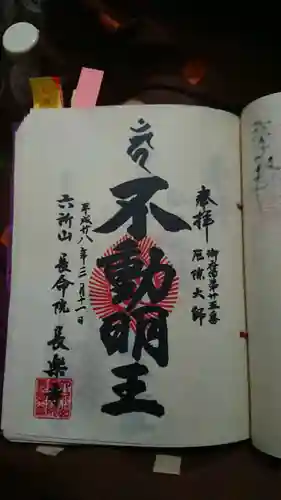 奉拝
御府内第廿五番
厄除大師
不動明王
平成廿八年三月十一日
六所山 長命院 長樂寺